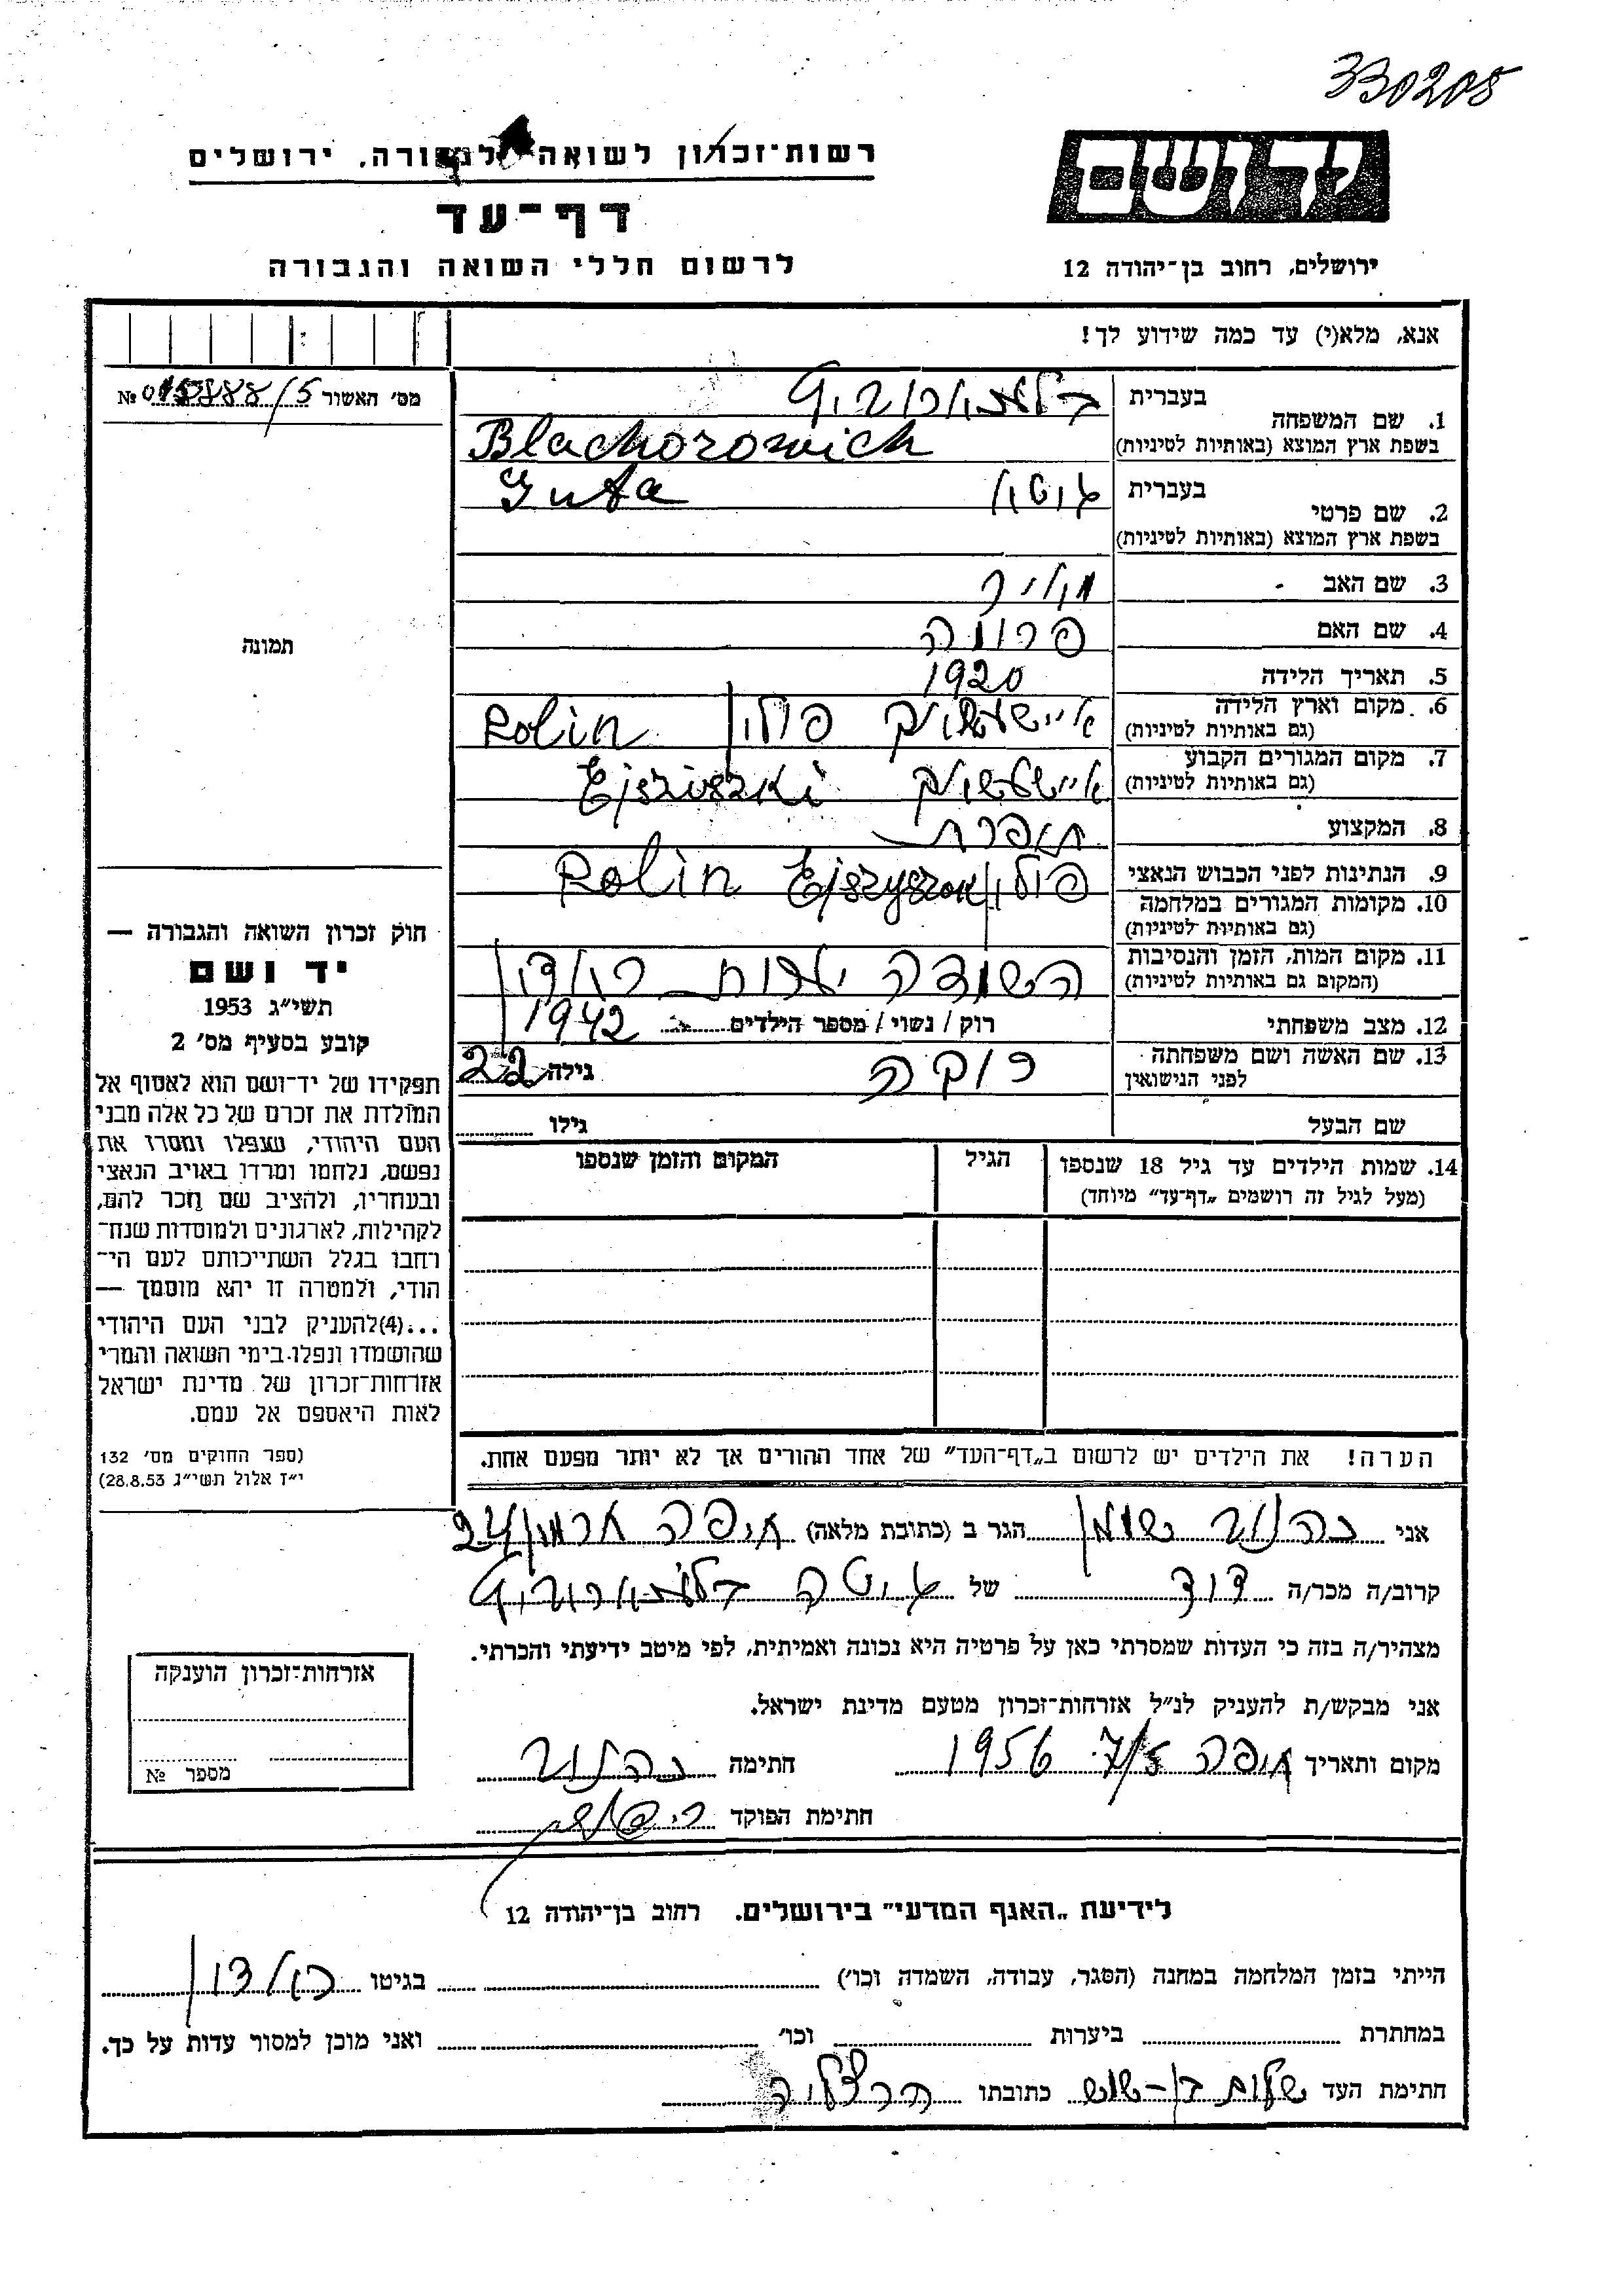 330208
יד ושם
רשות־זכרון לשואה ולגבורה, ירושלים
דף־עד
לרשום חללי השואה והגבורה
ירושלים, רחוב בן־יהודה 12
אנא, מלא(י) עד כמה שידוע לך!
מס׳ האשור № /5
1. שם המשפחה
בעברית
בשפת ארץ המוצא (באותיות לטיניות) Blachorowich
2. שם פרטי
בעברית גוטה Guta
בשפת ארץ המוצא (באותיות לטיניות)
3. שם האב
4. שם האם פרומה
5. תאריך הלידה 1920
6. מקום וארץ הלידה אישישוק פולין Polin
(גם באותיות לטיניות)
7. מקום המגורים הקבוע אישישוק Ejsziszki
(גם באותיות לטיניות)
8. המקצוע תופרת
9. הנתינות לפני הכבוש הנאצי פולין Polin
10. מקומות המגורים במלחמה
(גם באותיות לטיניות)
11. מקום המות, הזמן והנסיבות ראדון
(המקום גם באותיות לטיניות)
12. מצב משפחתי רוק / נשוי / מספר הילדים 1942
13. שם האשה ושם משפחתה לפני הנישואין רוקה גילה 22
שם הבעל גילו
14. שמות הילדים עד גיל 18 שנספו הגיל המקום והזמן שנספו
(מעל לגיל זה רושמים „דף־עד” מיוחד)
הערה! את הילדים יש לרשום ב„דף־העד” של אחד ההורים אך לא יותר מפעם אחת.
תמונה
חוק זכרון השואה והגבורה —
יד ושם
תשי״ג 1953
קובע בסעיף מס׳ 2
תפקידו של יד־ושם הוא לאסוף אל
המולדת את זכרם של כל אלה מבני
העם היהודי, שנפלו ומסרו את
נפשם, נלחמו ומרדו באויב הנאצי
ובעוזריו, ולהציב שם וזכר להם,
לקהילות, לארגונים ולמוסדות שנח־
רבו בגלל השתייכותם לעם הי־
הודי, ולמטרה זו יהא מוסמך —
...(4)להעניק לבני העם היהודי
שהושמדו ונפלו בימי השואה והמרי
אזרחות־זכרון של מדינת ישראל
לאות היאספם אל עמם.
(ספר החוקים מס׳ 132
י״ז אלול תשי״ג 28.8.53)
אני הגר ב (כתובת מלאה) חיפה 24
קרוב/ה מכר/ה דוד של גוטה
מצהיר/ה בזה כי העדות שמסרתי כאן על פרטיה היא נכונה ואמיתית, לפי מיטב ידיעתי והכרתי.
אני מבקש/ת להעניק לנ״ל אזרחות־זכרון מטעם מדינת ישראל.
מקום ותאריך חיפה 7/5 1956 חתימה
חתימת הפוקד
אזרחות־זכרון הוענקה
מספר №
לידיעת „האגף המדעי” בירושלים. רחוב בן־יהודה 12
הייתי בזמן המלחמה במחנה (הסגר, עבודה, השמדה וכו׳) בגיטו ראדון
במחתרת ביערות וכו׳ ואני מוכן למסור עדות על כך.
חתימת העד כתובתו הרצליה